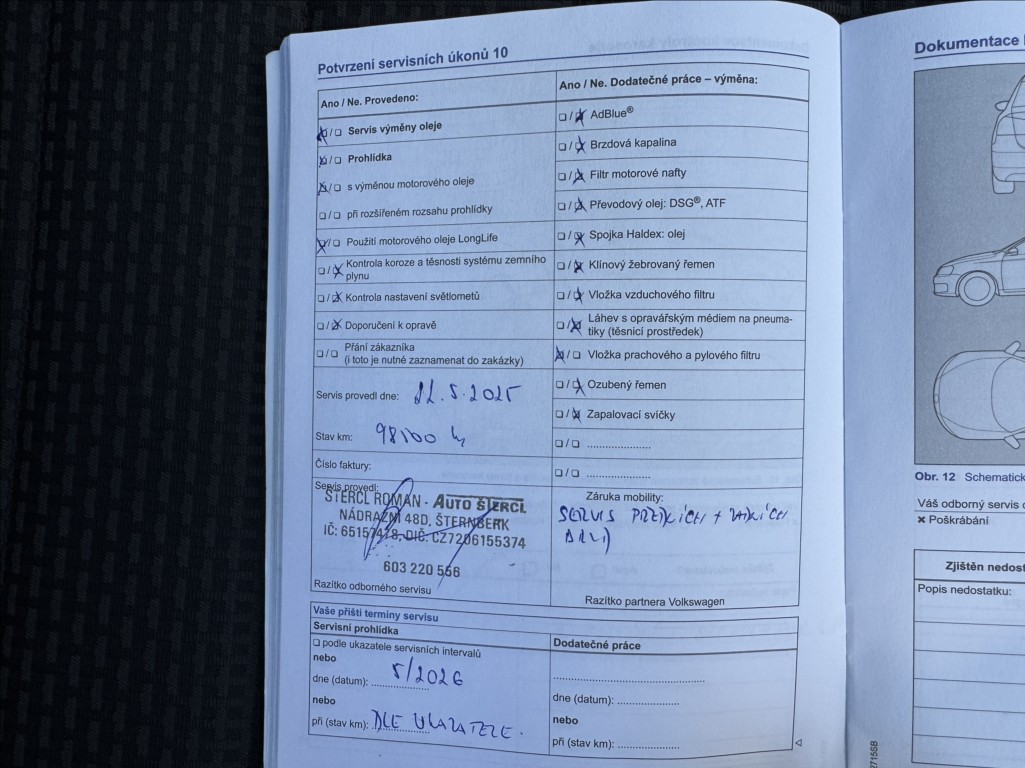 Potvrzení servisních úkonů 10
Ano / Ne. Provedeno:
❑/❑ Servis výměny oleje
❑/❑ Prohlídka
❑/❑ s výměnou motorového oleje
❑/❑ při rozšířeném rozsahu prohlídky
❑/❑ Použití motorového oleje LongLife
❑/❑ Kontrola koroze a těsnosti systému zemního
plynu
❑/❑ Kontrola nastavení světlometů
❑/❑ Doporučení k opravě
❑/❑ Přání zákazníka
(i toto je nutné zaznamenat do zakázky)
Servis provedl dne: 22.5.2025
Stav km: 98100 km
Číslo faktury:
Servis provedl:
ŠTERCL ROMAN - AUTO ŠTERCL
NÁDRAŽNÍ 48D, ŠTERNBERK
IČ: 65157478, DIČ: CZ7206155374
603 220 556
Razítko odborného servisu
Ano / Ne. Dodatečné práce – výměna:
❑/❑ AdBlue®
❑/❑ Brzdová kapalina
❑/❑ Filtr motorové nafty
❑/❑ Převodový olej: DSG®, ATF
❑/❑ Spojka Haldex: olej
❑/❑ Klínový žebrovaný řemen
❑/❑ Vložka vzduchového filtru
❑/❑ Láhev s opravářským médiem na pneuma-
tiky (těsnicí prostředek)
❑/❑ Vložka prachového a pylového filtru
❑/❑ Ozubený řemen
❑/❑ Zapalovací svíčky
❑/❑ .....................
❑/❑ .....................
Záruka mobility:
SERVIS PŘEDNÍCH + ZADNÍCH
BRZD
Razítko partnera Volkswagen
Vaše příští termíny servisu
Servisní prohlídka
❑ podle ukazatele servisních intervalů
nebo
dne (datum): 5/2026
nebo
při (stav km): DLE UKAZATELE.
Dodatečné práce
..................................................
dne (datum): .....................
nebo
při (stav km): .....................
Dokumentace
Obr. 12 Schematick
Váš odborný servis
✖ Poškrábání
Zjištěn nedost
Popis nedostatku:
2715SB